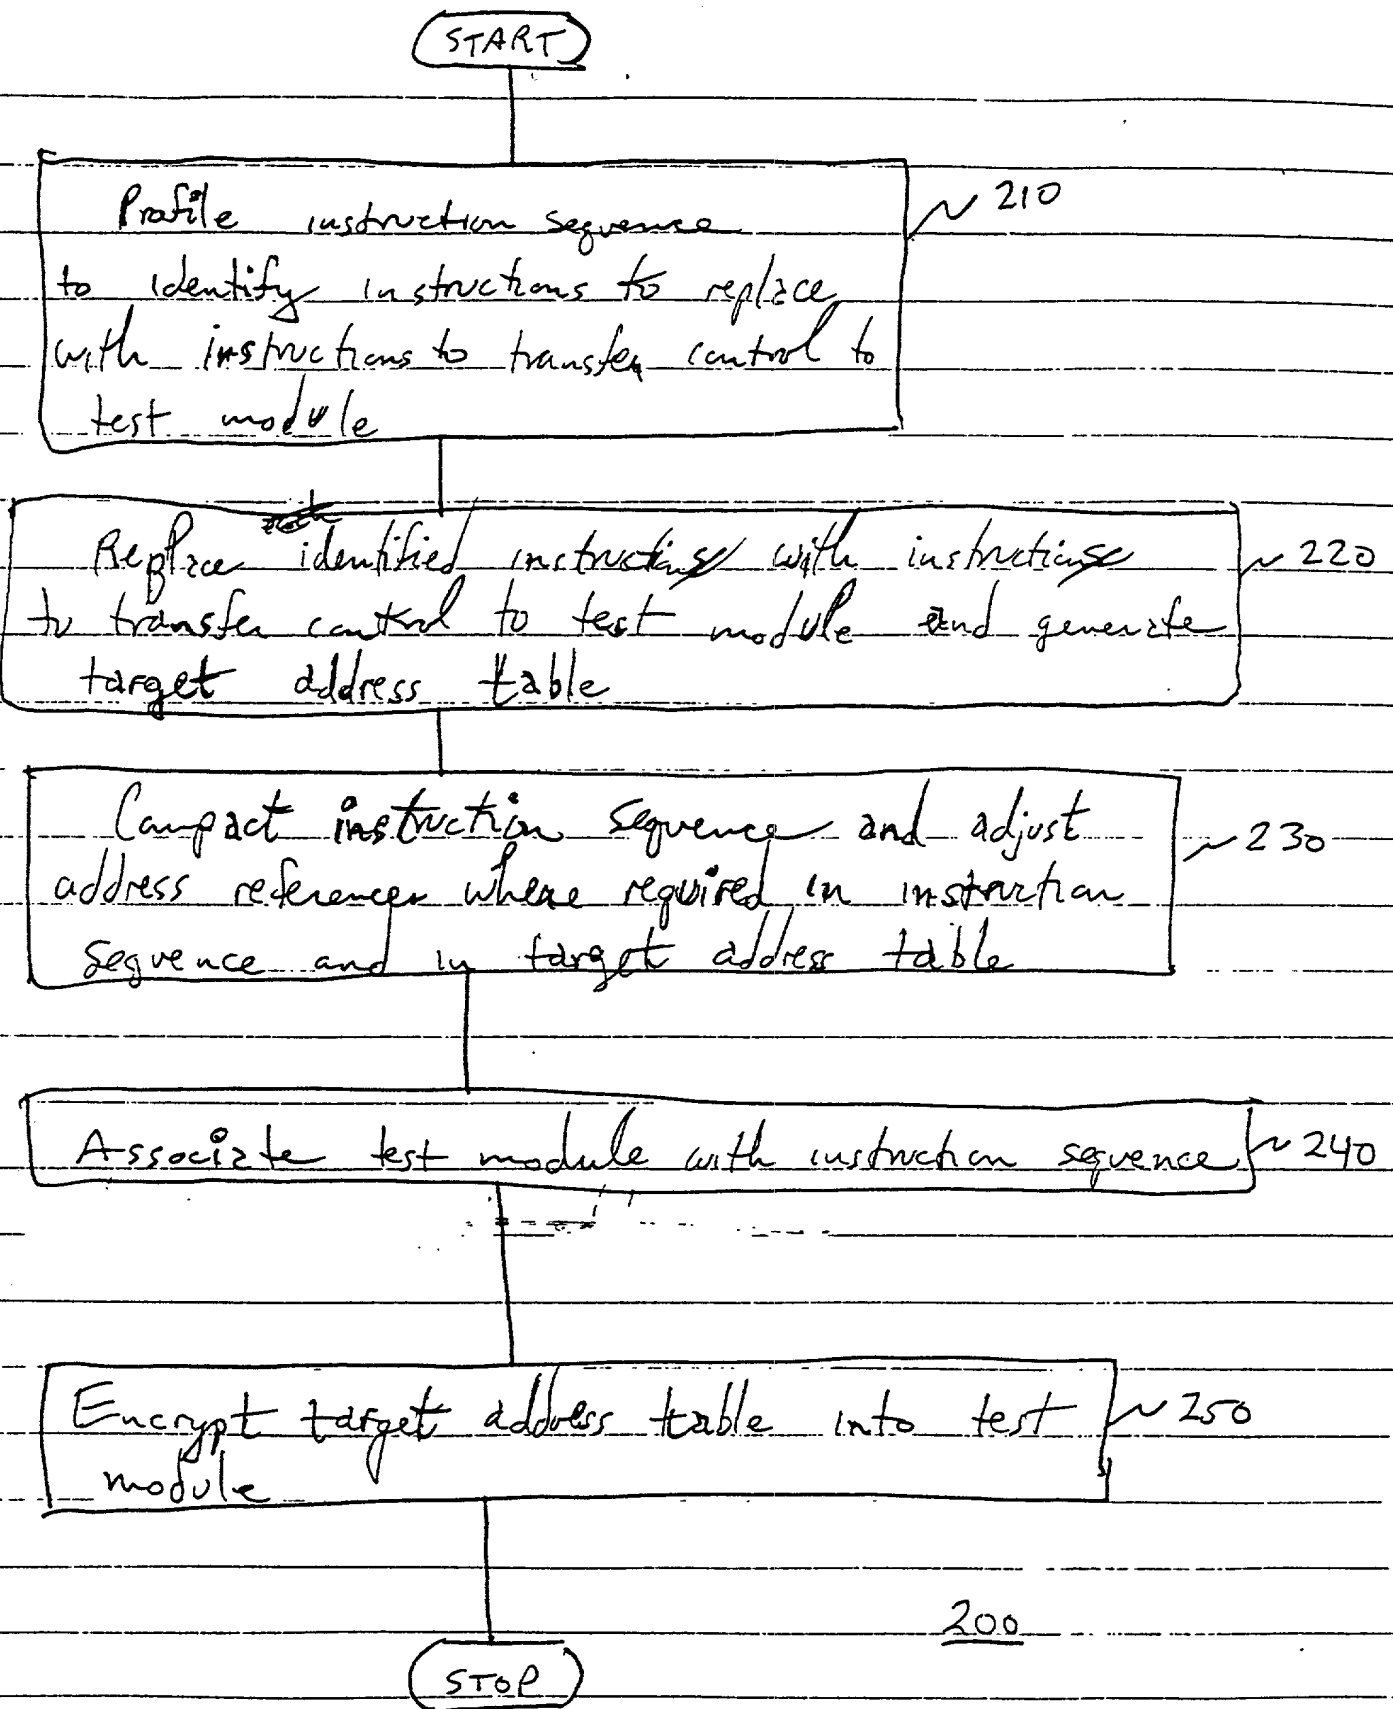 START
Profile instruction sequence
to identify instructions to replace
with instructions to transfer control to
test module
~ 210
Replace identified instructions with instructions
to transfer control to test module and generate
target address table
~ 220
Compact instruction sequence and adjust
address references where required in instruction
sequence and in target address table
~ 230
Associate test module with instruction sequence
~ 240
Encrypt target address table into test
module
~ 250
200
STOP